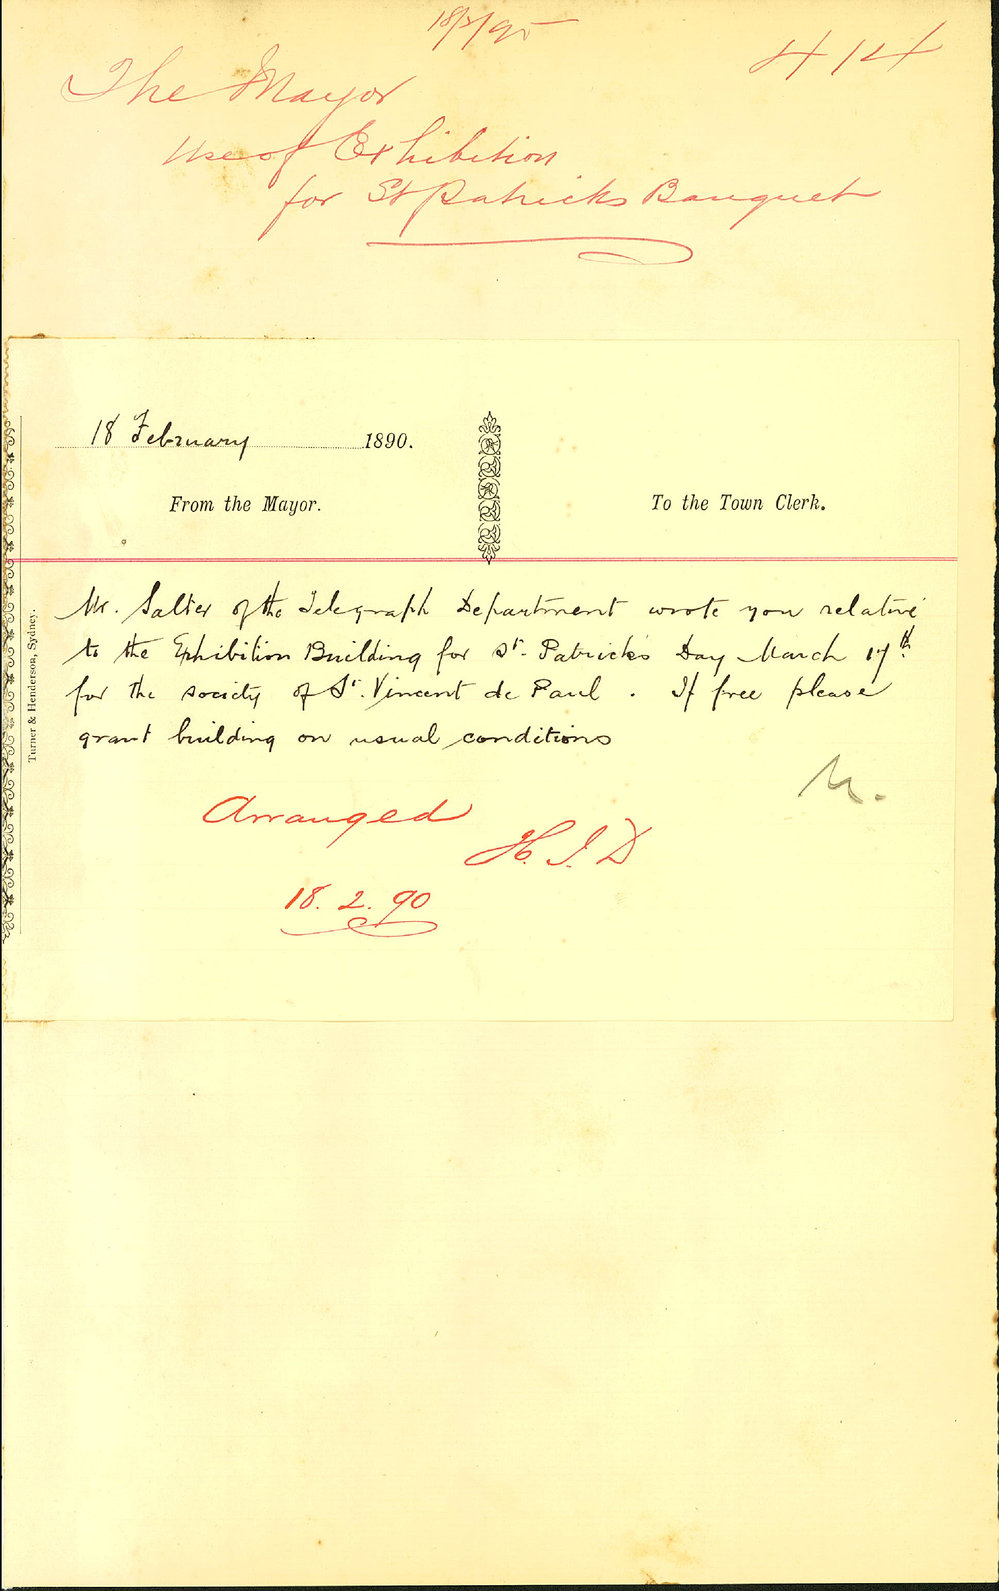 18/2/90
414
The Mayor
Use of Exhibition
for St Patricks Banquet
18 February 1890.
From the Mayor.
To the Town Clerk.
Mr. Salter of the Telegraph Department wrote you relative
to the Exhibition Building for St. Patrick's Day March 17th.
for the society of St. Vincent de Paul. If free please
grant building on usual conditions
M.
Arranged
H. J. D
18. 2. 90
Turner & Henderson, Sydney.